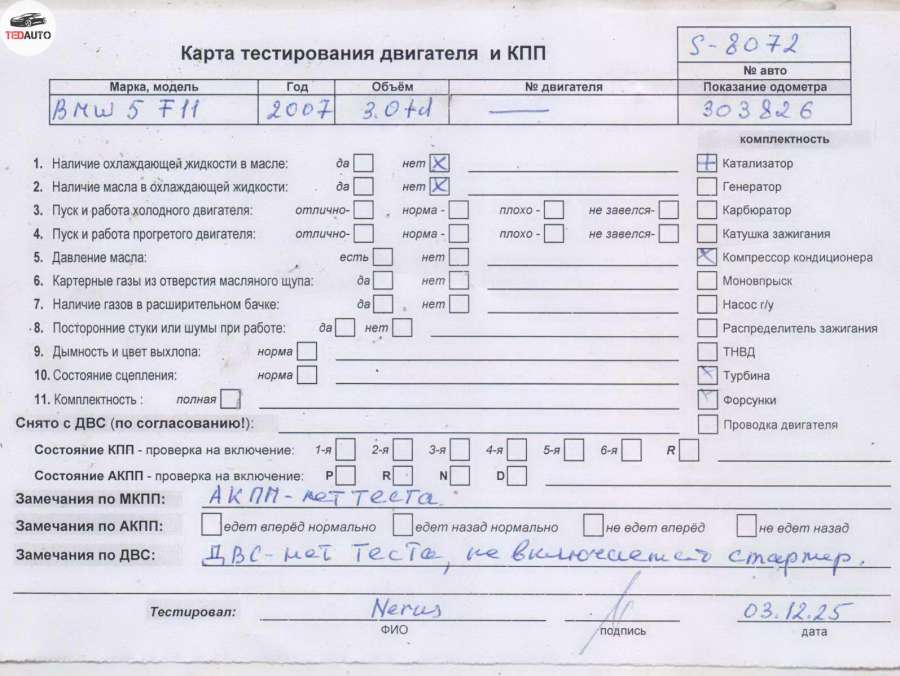 TEDAUTO
Карта тестирования двигателя и КПП
S-8072
№ авто
Марка, модель Год Объём № двигателя Показание одометра
BMW 5 F11 2007 3.0td — 303826
комплектность
1. Наличие охлаждающей жидкости в масле: да нет X Катализатор
2. Наличие масла в охлаждающей жидкости: да нет X Генератор
3. Пуск и работа холодного двигателя: отлично- норма - плохо - не завелся- Карбюратор
4. Пуск и работа прогретого двигателя: отлично- норма - плохо - не завелся- Катушка зажигания
5. Давление масла: есть нет X Компрессор кондиционера
6. Картерные газы из отверстия масляного щупа: да нет Моновпрыск
7. Наличие газов в расширительном бачке: да нет Насос г/у
8. Посторонние стуки или шумы при работе: да нет Распределитель зажигания
9. Дымность и цвет выхлопа: норма ТНВД
10. Состояние сцепления: норма Турбина
11. Комплектность : полная Форсунки
Снято с ДВС (по согласованию!): Проводка двигателя
Состояние КПП - проверка на включение: 1-я 2-я 3-я 4-я 5-я 6-я R
Состояние АКПП - проверка на включение: P R N D
Замечания по МКПП: АКПП-нет теста.
Замечания по АКПП: едет вперёд нормально едет назад нормально не едет вперёд не едет назад
Замечания по ДВС: ДВС-нет теста, не включается стартер.
Тестировал: Nerus 03.12.25
ФИО подпись дата